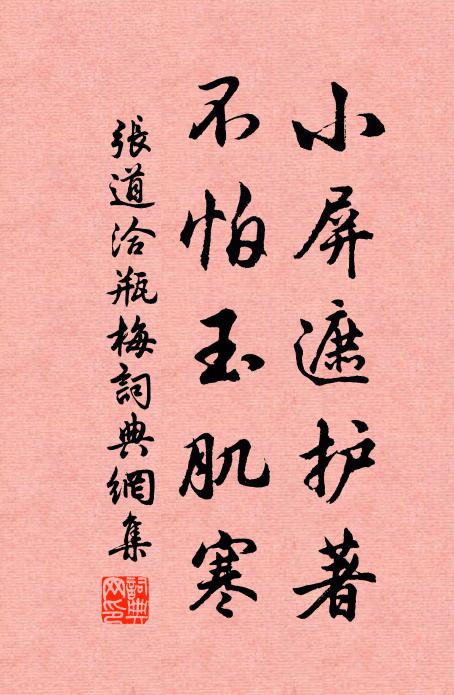 小屏遮护著
不怕玉肌寒
張道洽瓶梅詞典網集
詞典網印